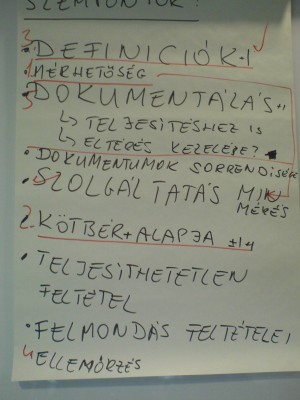 SZEMPONTOK:
3. • DEFINICIÓK!
1 • MÉRHETŐSÉG
3 DOKUMENTÁLÁS
↳ TELJESÍTÉSHEZ IS
↳ ELTÉRÉS KEZELÉSE?
• DOKUMENTUMOK SORRENDISÉGE
• SZOLGÁLTATÁS MIN
MÉRÉS
2. KÖTBÉR + ALAPJA ±
• TELJESÍTHETETLEN
FELTÉTEL
• FELMONDÁS FELTÉTELEI
4 ELLENŐRZÉS